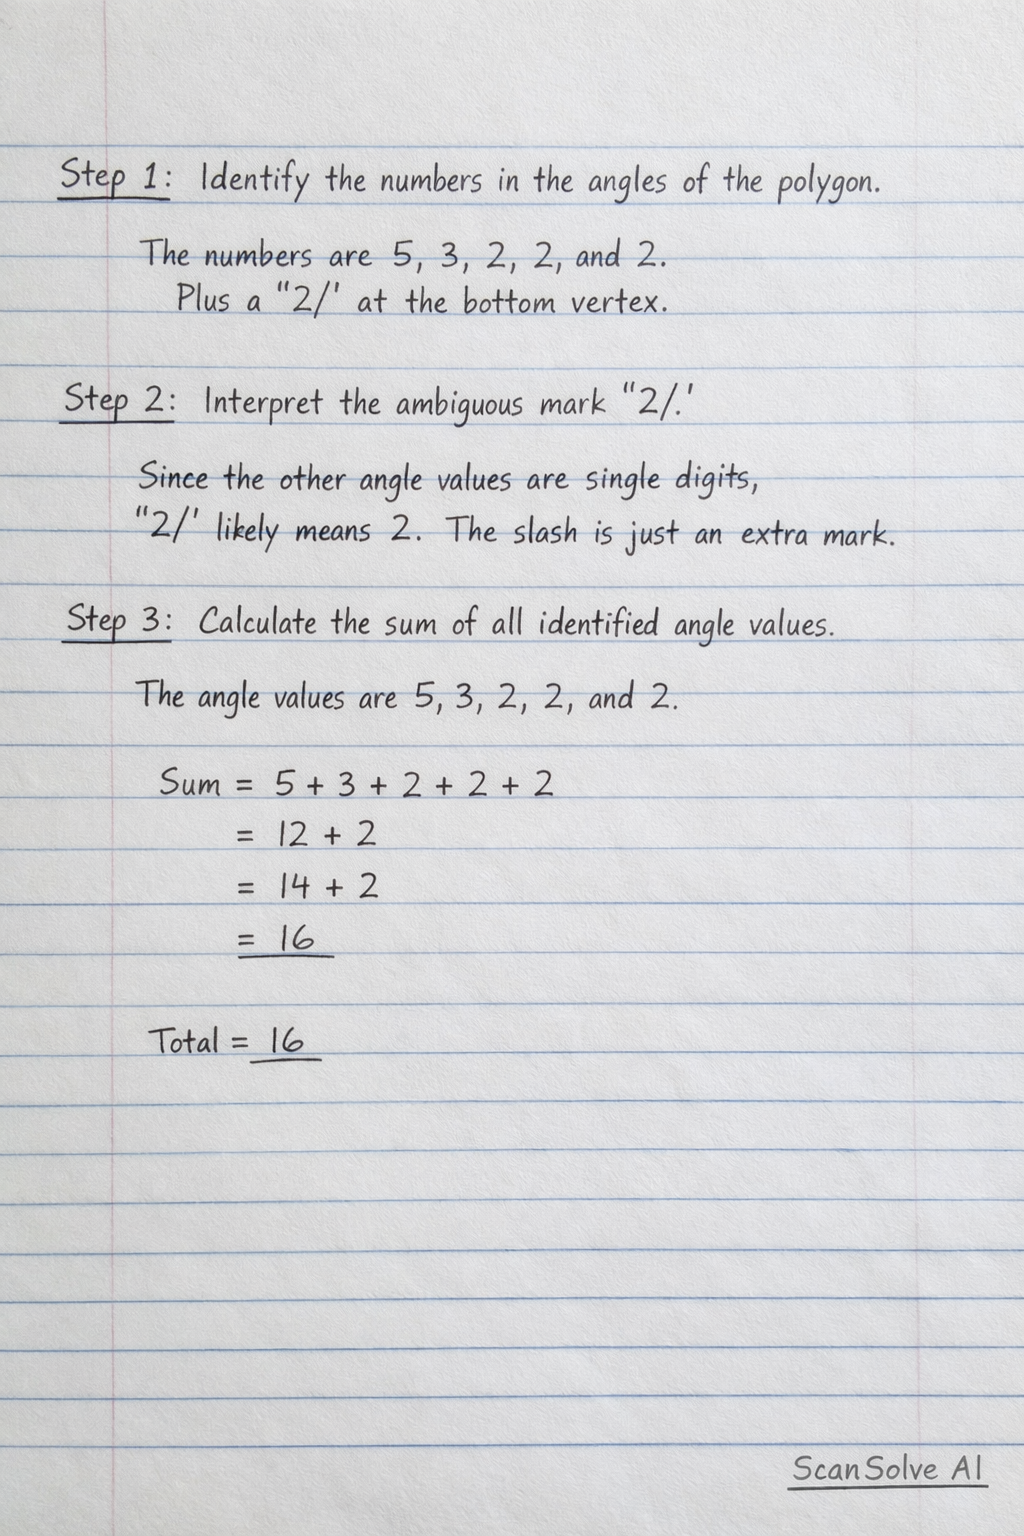 Step 1: Identify the numbers in the angles of the polygon.
The numbers are 5, 3, 2, 2, and 2.
Plus a "2/' at the bottom vertex.
Step 2: Interpret the ambiguous mark "2/.'
Since the other angle values are single digits,
"2/' likely means 2. The slash is just an extra mark.
Step 3: Calculate the sum of all identified angle values.
The angle values are 5, 3, 2, 2, and 2.
Sum = 5 + 3 + 2 + 2 + 2
= 12 + 2
= 14 + 2
= 16
Total = 16
ScanSolve AI